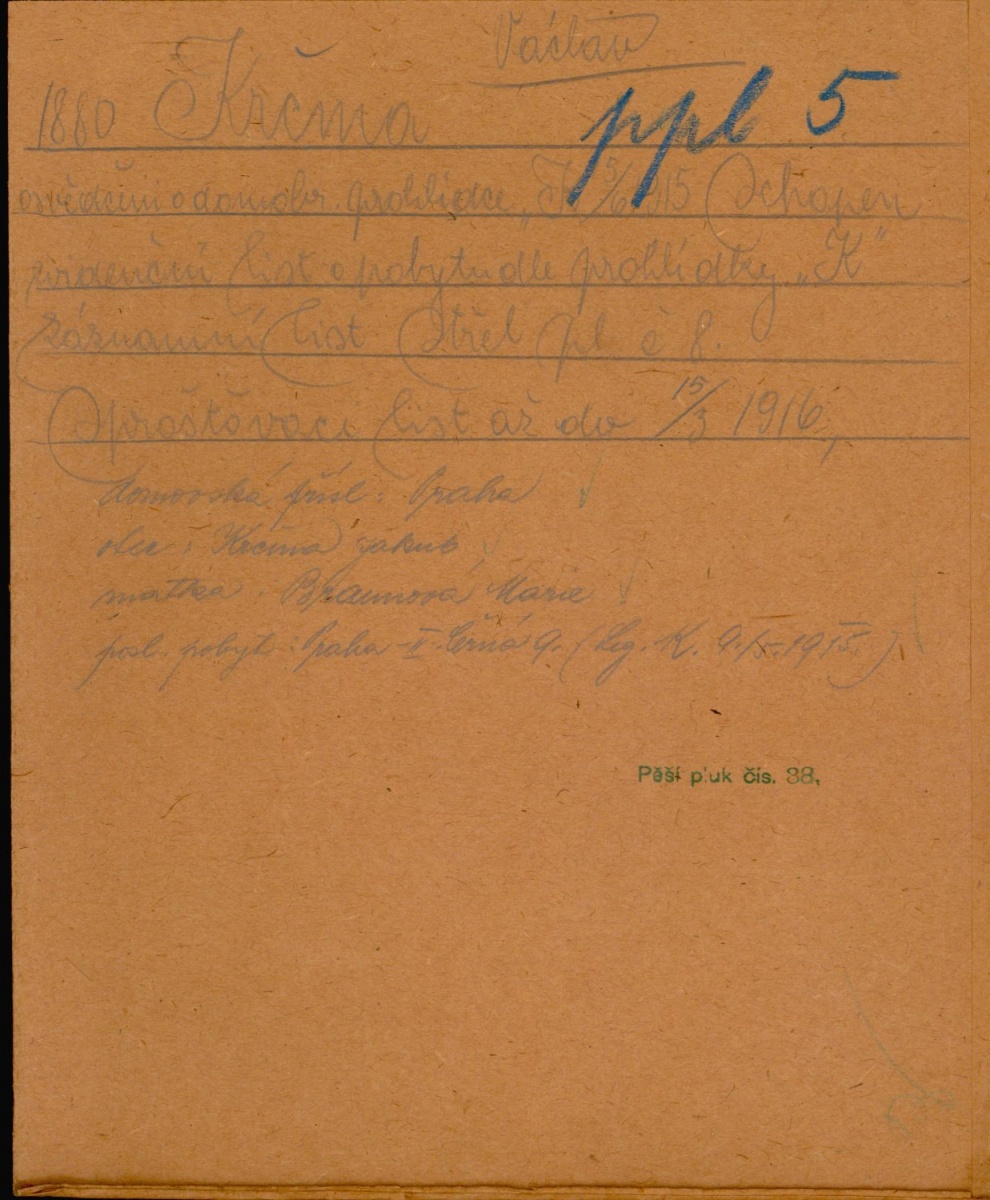 Václav
1880 Krčma ppl 5
osvědčení o domobr. prohlídce „K 5/6 1915 Schopen
evidenční list o pobytu dle prohlídky „K“
záznamní list Střel pl č 8.
Sprošťovací list až do 15/3 1916,
domovská přísl: Praha
otec: Krčma Jakub
matka: Braunová Marie
posl. pobyt: Praha II. Černá 9. (Leg. K. 9./5. 1915.)
Pěší pluk čís. 38,